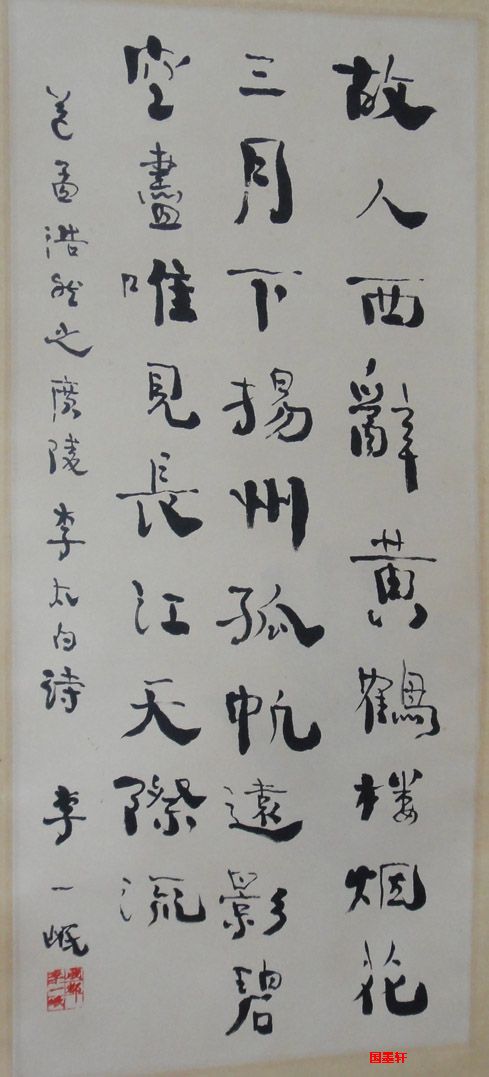 故人西辭黄鶴楼烟花
三月下揚州孤帆遠影碧
空盡唯見長江天際流
送孟浩然之廣陵李太白诗 李一氓
成都李一氓
国墨轩